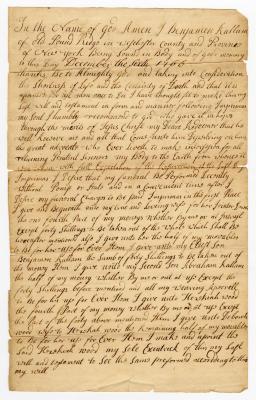 In the Name of God Amen I Benjamin Hallam
of old Pound Ridge in Westchester County and Province
of New York Being Sound in Body and of good memory
to this Day December the
thanks Be to Almighty god and taking into Consideration
the Shortness of Life and the Certainty of Death and that it is
for all men once to Die I have thought to make this my
Last will and testament in form and manner following Imprimis
my Soul I humbly recommend to god who gave it in hopes
through the merits of Jesus Christ my Dear Redeemer that he
will Receive me and all that Put their trust in him
the great advocate who Ever Liveth to make intercession for all
returning Penitent sinners my Body to the Earth from whence it
Imprimis I Desire that my funeral Be Performed Decently
without Pomp or State and in a convenient time after I
Desire my funeral Charges to Be paid Imprimis in the first Place
I give and Bequeath unto my true and Loving wife
the one fourth Part of my movings whether By me or on Interest
Except forty Shillings to Be taken out of the whole which Shall Be
hereafter mentioned also I give unto her the half of my wearables
to Be for her use for Ever Item I give unto my Eldest Son
Benjamin Hallam the Sum of forty Shillings to Be taken out of
the money Item I give unto my Second Son Abraham Hallam
the half of my money whether By me or out at use Except the
forty Shillings before mentioned and all my wearing apparell
to be for his use for Ever Item I give unto Hezekiah wood
the fourth Part of my money whether By me or out at use Except
the Part of the forty above mentioned Item I give unto Deborah
wood wife to Hezekiah wood the remaining half of my wearables
to Be for her use for Ever Item I make and apoint the
Said Hezekiah wood my Sole Executor of this my Last
will and testament to See the Same preformed according to this
my will